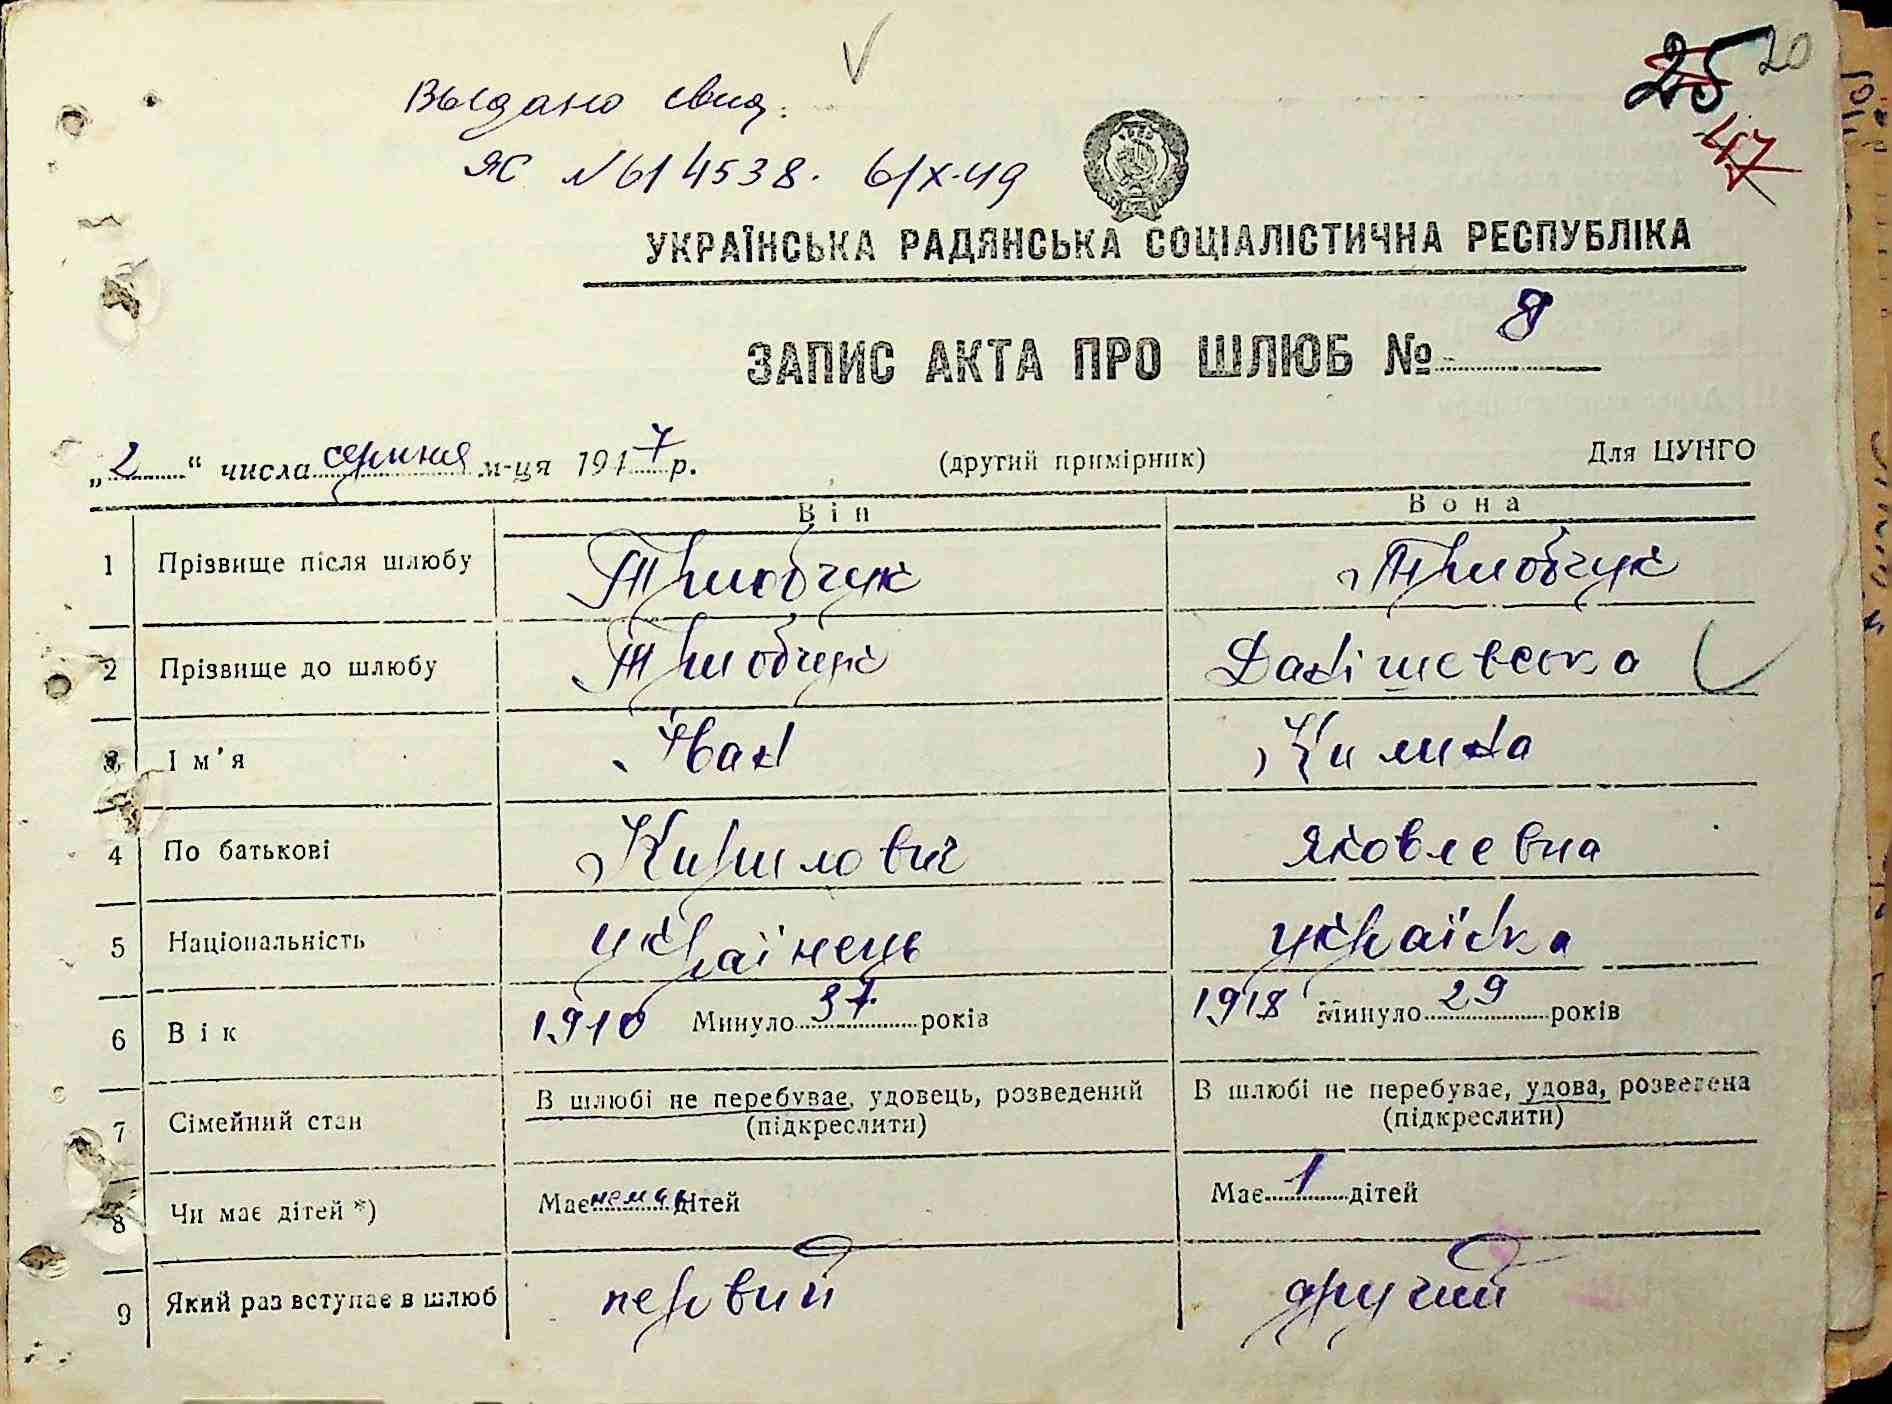 25 20
47
Выдано свид.
ЯС №614538. 6/X-49
УКРАЇНСЬКА РАДЯНСЬКА СОЦІАЛІСТИЧНА РЕСПУБЛІКА
ЗАПИС АКТА ПРО ШЛЮБ № 8
„2“ числа серпня м-ця 1947 р. (другий примірник) Для ЦУНГО
Він Вона
1 Прізвище після шлюбу Трибчук Трибчук
2 Прізвище до шлюбу Трибчук Данішевська
3 Ім'я Іван Килина
4 По батькові Кирилович Яковлевна
5 Національність українець українка
6 Вік 1910 Минуло 37 років 1918 Минуло 29 років
7 Сімейний стан В шлюбі не перебуває, удовець, розведений (підкреслити) В шлюбі не перебуває, удова, розведена (підкреслити)
8 Чи має дітей *) Має немає дітей Має 1 дітей
9 Який раз вступає в шлюб первий другий